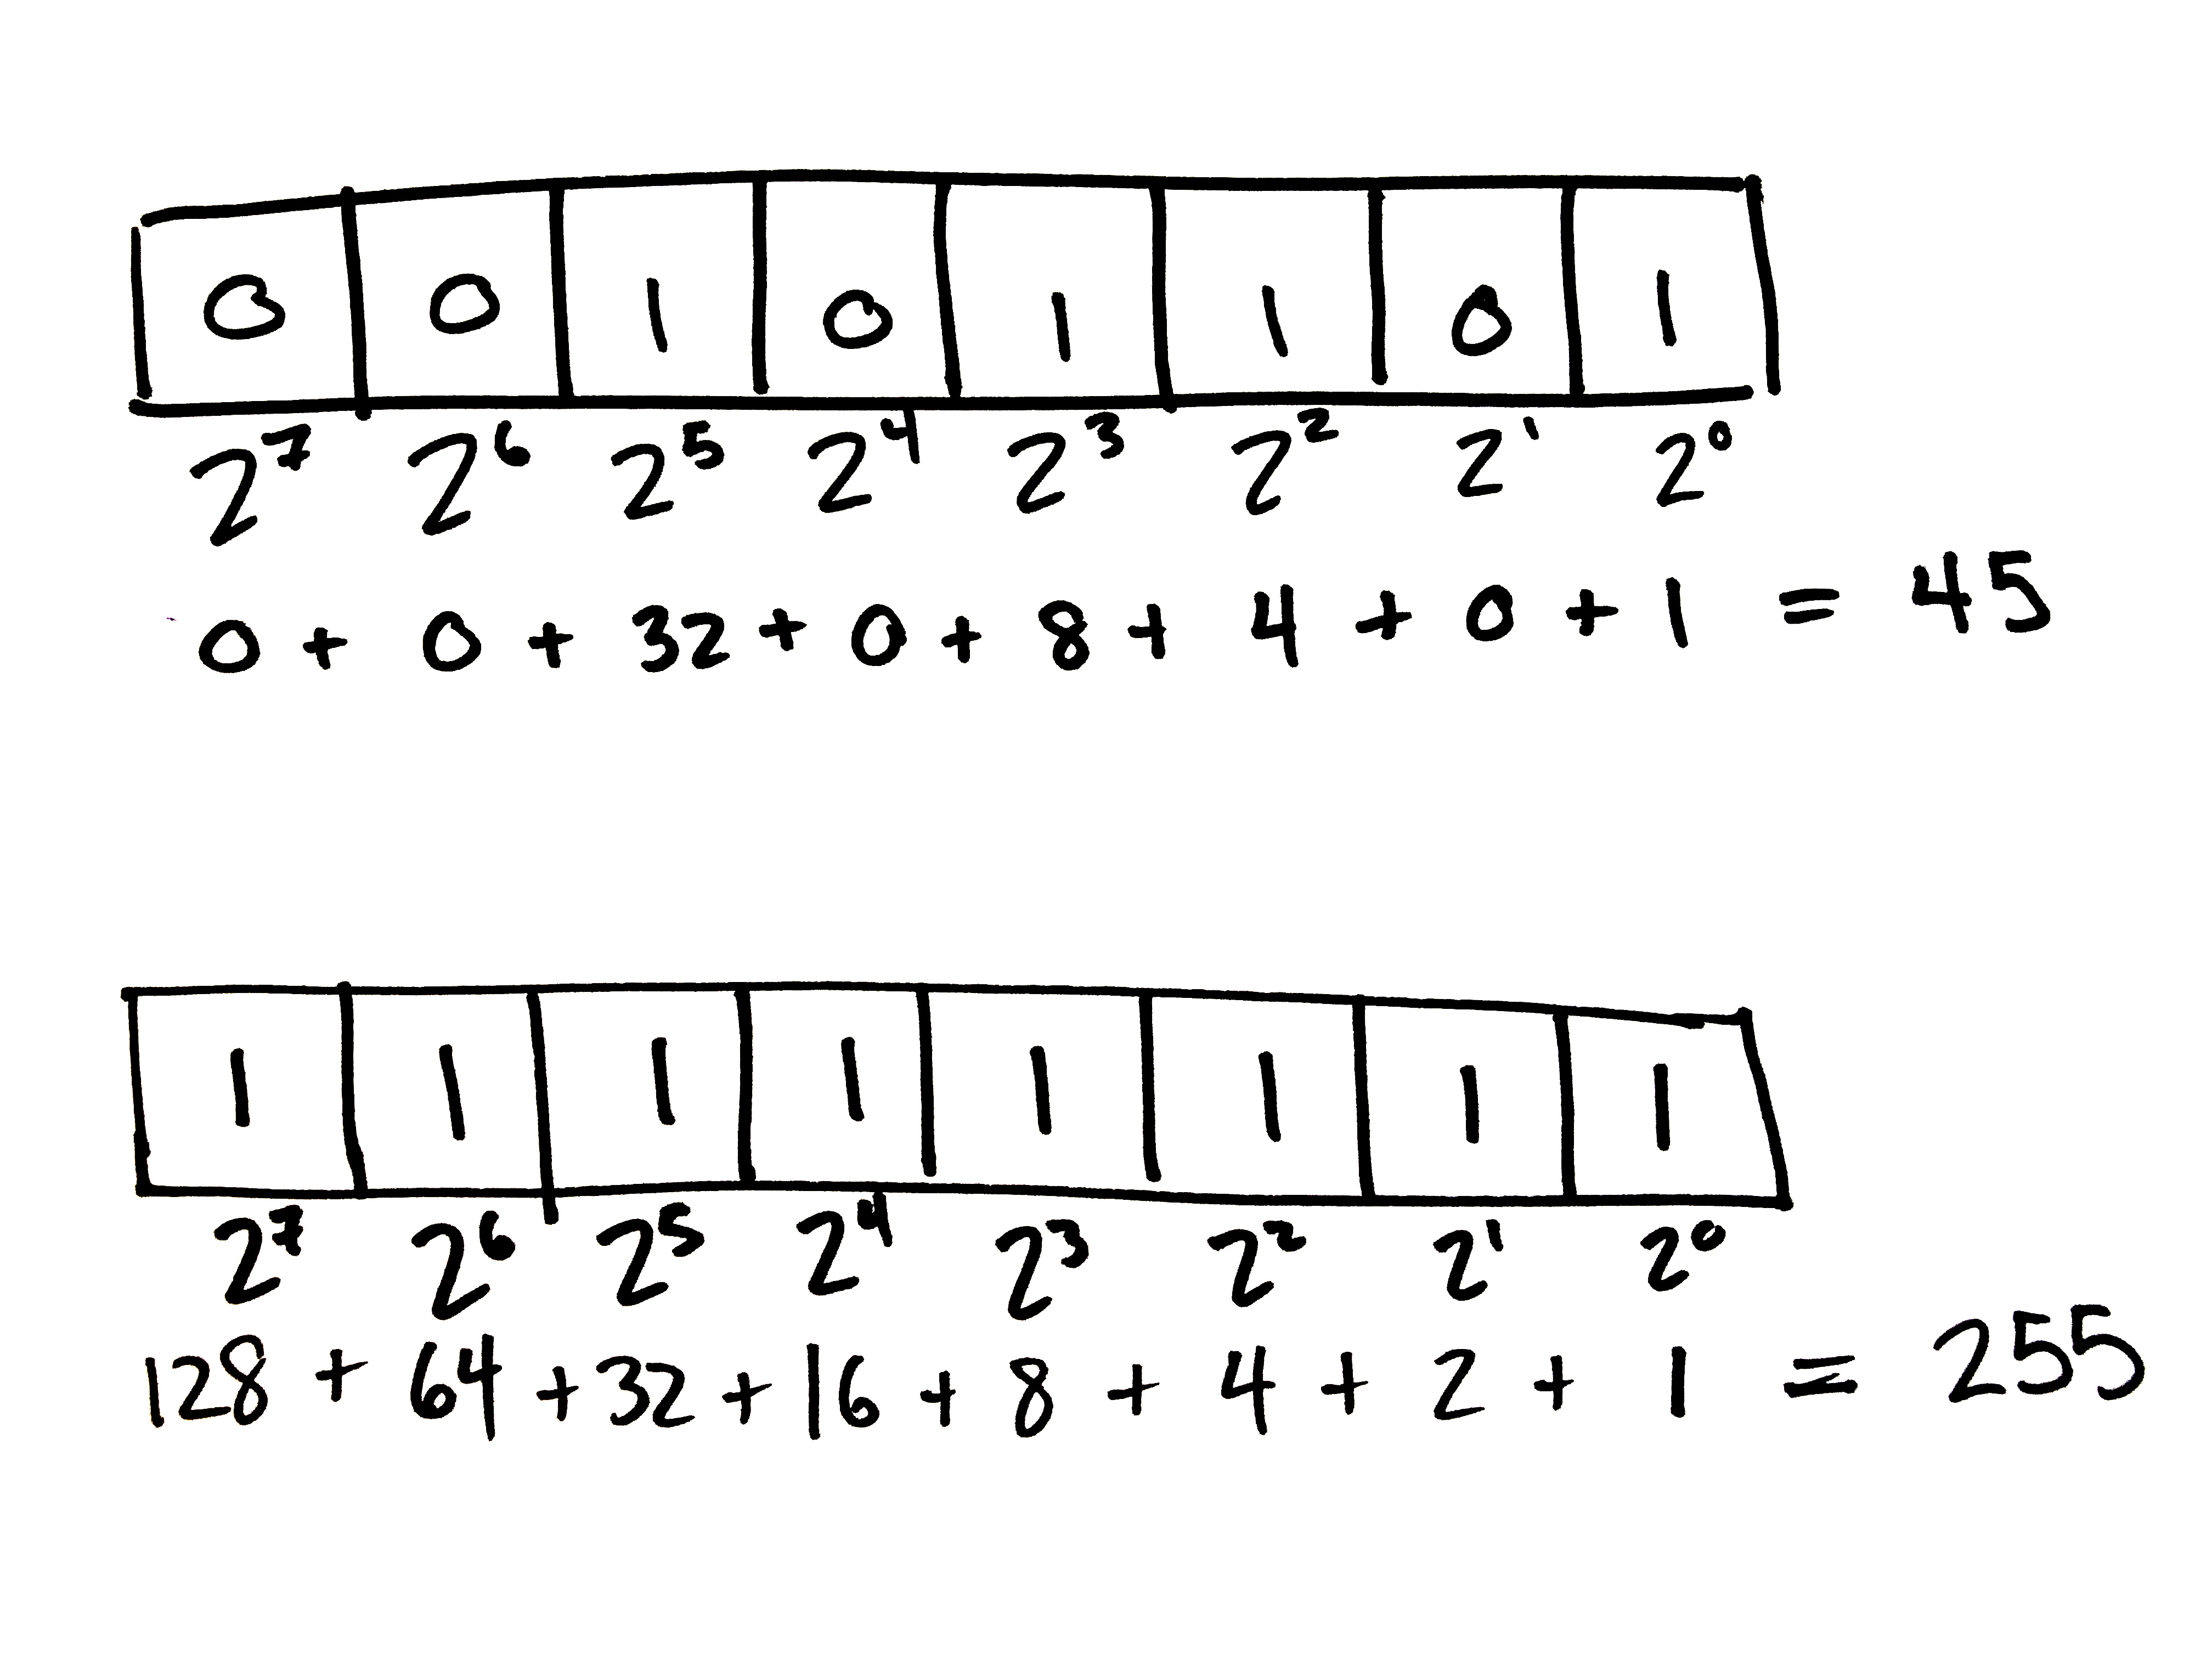 0 0 1 0 1 1 0 1
2⁷ 2⁶ 2⁵ 2⁴ 2³ 2² 2¹ 2⁰
0 + 0 + 32 + 0 + 8 + 4 + 0 + 1 = 45
1 1 1 1 1 1 1 1
2⁷ 2⁶ 2⁵ 2⁴ 2³ 2² 2¹ 2⁰
128 + 64 + 32 + 16 + 8 + 4 + 2 + 1 = 255